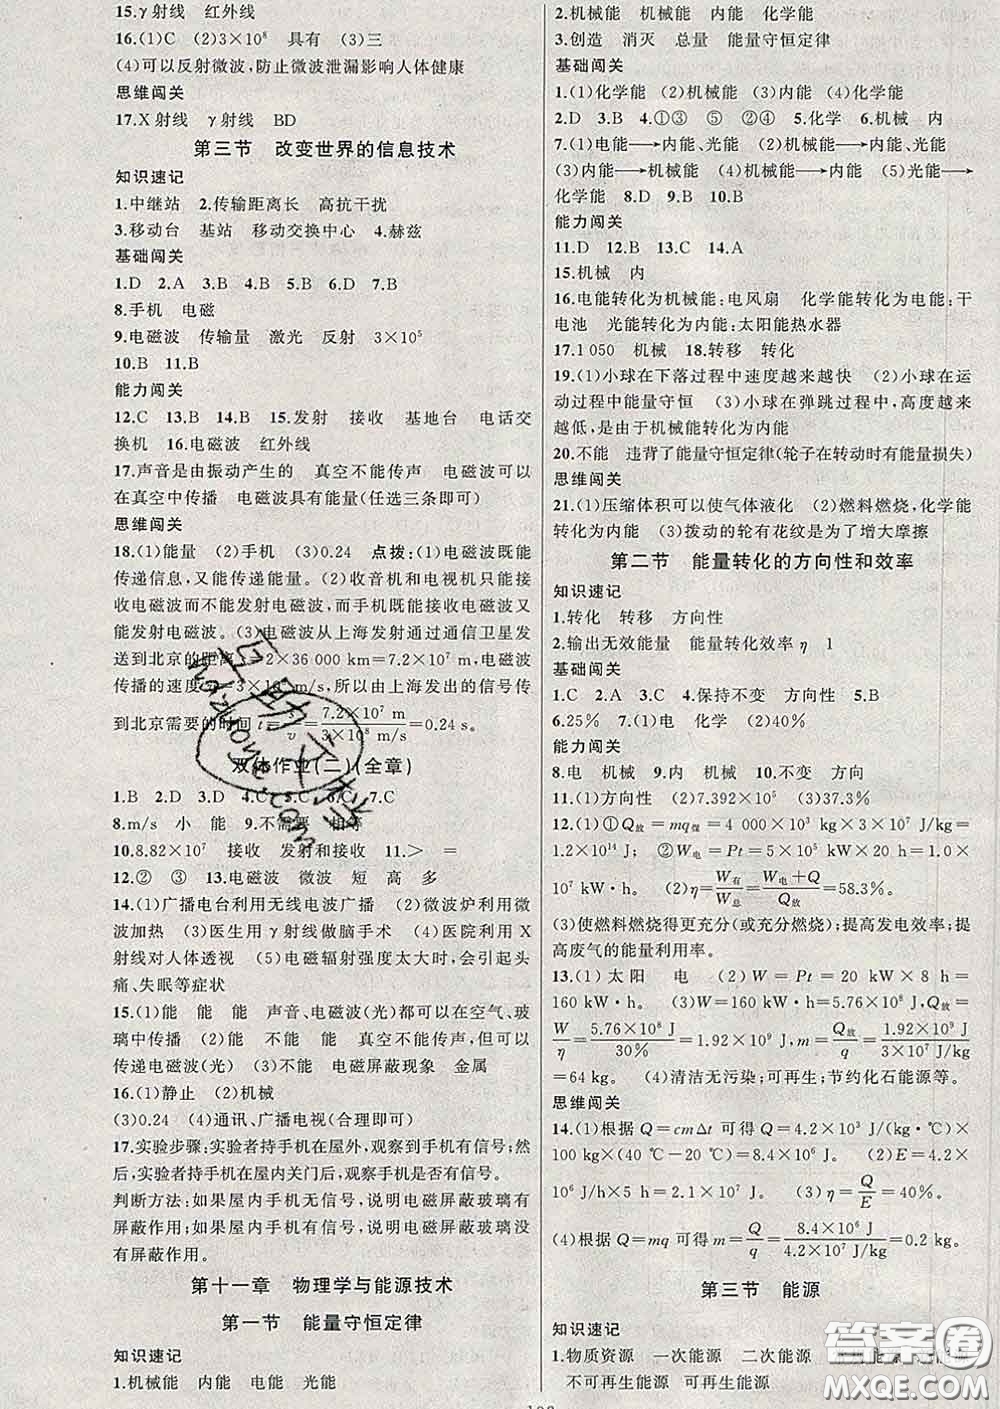 15.γ射线　红外线
16.(1)C　(2)3×10⁸　具有　(3)三
(4)可以反射微波,防止微波泄漏影响人体健康
思维闯关
17.X射线　γ射线　BD
第三节　改变世界的信息技术
知识速记
1.中继站　2.传输距离长　高抗干扰
3.移动台　基站　移动交换中心　4.赫兹
基础闯关
1.D　2.A　3.B　4.B　5.D　6.D　7.B
8.手机　电磁
9.电磁波　传输量　激光　反射　3×10⁵
10.B　11.B
能力闯关
12.C　13.B　14.B　15.发射　接收　基地台　电话交
换机　16.电磁波　红外线
17.声音是由振动产生的　真空不能传声　电磁波可以
在真空中传播　电磁波具有能量(任选三条即可)
思维闯关
18.(1)能量　(2)手机　(3)0.24　点拨:(1)电磁波既能
传递信息,又能传递能量。(2)收音机和电视机只能接
收电磁波而不能发射电磁波,而手机既能接收电磁波又
能发射电磁波。(3)电磁波从上海发射通过通信卫星发
送到北京的距离s=2×36 000 km=7.2×10⁷ m,电磁波
传播的速度v=3×10⁸ m/s,所以由上海发出的信号传
到北京需要的时间 t=s/v=7.2×10⁷ m/3×10⁸ m/s=0.24 s。
双休作业(二)(全章)
1.B　2.D　3.D　4.C　5.C　6.C　7.C
8.m/s　小　能　9.不需要　相等
10.8.82×10⁷　接收　发射和接收　11.>　=
12.②　③　13.电磁波　微波　短　高　多
14.(1)广播电台利用无线电波广播　(2)微波炉利用微
波加热　(3)医生用γ射线做脑手术　(4)医院利用X
射线对人体透视　(5)电磁辐射强度太大时,会引起头
痛、失眠等症状
15.(1)能　能　能　声音、电磁波(光)都可以在空气、玻
璃中传播　(2)能　不能　能　真空不能传声,但能够
传递电磁波(光)　(3)不能　电磁屏蔽现象　金属
16.(1)静止　(2)机械
(3)0.24　(4)通讯、广播电视(合理即可)
17.实验步骤:实验者持手机在屋外,观察到手机有信号;然
后,实验者持手机在屋内关门后,观察手机是否有信号。
判断方法:如果屋内手机无信号,说明电磁屏蔽玻璃有
屏蔽作用;如果屋内手机有信号,说明电磁屏蔽玻璃没
有屏蔽作用。
第十一章　物理学与能源技术
第一节　能量守恒定律
知识速记
1.机械能　内能　电能　光能
2.机械能　机械能　内能　化学能
3.创造　消灭　总量　能量守恒定律
基础闯关
1.(1)化学能　(2)机械能　(3)内能　(4)化学能
2.D　3.B　4.①③　⑤　②④　5.化学　6.机械　内
7.(1)电能→内能、光能　(2)电能→内能、光能
(3)内能→机械能　(4)机械能→内能　(5)光能→
化学能　8.D　9.B　10.B
能力闯关
11.D　12.B　13.C　14.A
15.机械　内
16.电能转化为机械能:电风扇　化学能转化为电能:干
电池　光能转化为内能:太阳能热水器
17.1 050　机械　18.转移　转化
19.(1)小球在下落过程中速度越来越快　(2)小球在运
动过程中能量守恒　(3)小球在弹跳过程中,高度越来
越低,是由于机械能转化为内能
20.不能　违背了能量守恒定律(轮子在转动时有能量损失)
思维闯关
21.(1)压缩体积可以使气体液化　(2)燃料燃烧,化学能
转化为内能　(3)拨动的轮有花纹是为了增大摩擦
第二节　能量转化的方向性和效率
知识速记
1.转化　转移　方向性
2.输出无效能量　能量转化效率η　1
基础闯关
1.C　2.A　3.C　4.保持不变　方向性　5.B
6.25%　7.(1)电　化学　(2)40%
能力闯关
8.电　机械　9.内　机械　10.不变　方向
11.(1)方向性　(2)7.392×10⁵　(3)37.3%
12.(1)①Q放=mq煤=4 000×10³ kg×3×10⁷ J/kg=
1.2×10¹⁴ J;　②W电=Pt=5×10⁵ kW×20 h=1.0×
10⁷ kW·h。　(2)η=W有/W总=W电+Q/Q放=58.3%。
(3)使燃料燃烧得更充分(或充分燃烧);提高发电效率;提
高废气的能量利用率。
13.(1)太阳　电　(2)W=Pt=20 kW×8 h=
160 kW·h。　(3)W=160 kW·h=5.76×10⁸ J,Q放=
W/η=5.76×10⁸ J/30%=1.92×10⁹ J,m=Q放/q=1.92×10⁹ J/3×10⁷ J/kg
=64 kg。　(4)清洁无污染;可再生;节约化石能源等。
思维闯关
14.(1)根据 Q=cmΔt 可得 Q=4.2×10³ J/(kg·℃)×
100 kg×(40℃-20℃)=8.4×10⁶ J。　(2)E=4.2×
10⁶ J/h×5 h=2.1×10⁷ J。　(3)η=Q/E=40%。
(4)根据 Q=mq 可得 m=Q/q=8.4×10⁶ J/4.2×10⁷ J/kg=0.2 kg。
第三节　能源
知识速记
1.物质资源　一次能源　二次能源
不可再生能源　可再生能源
答案圈
MXQE.COM